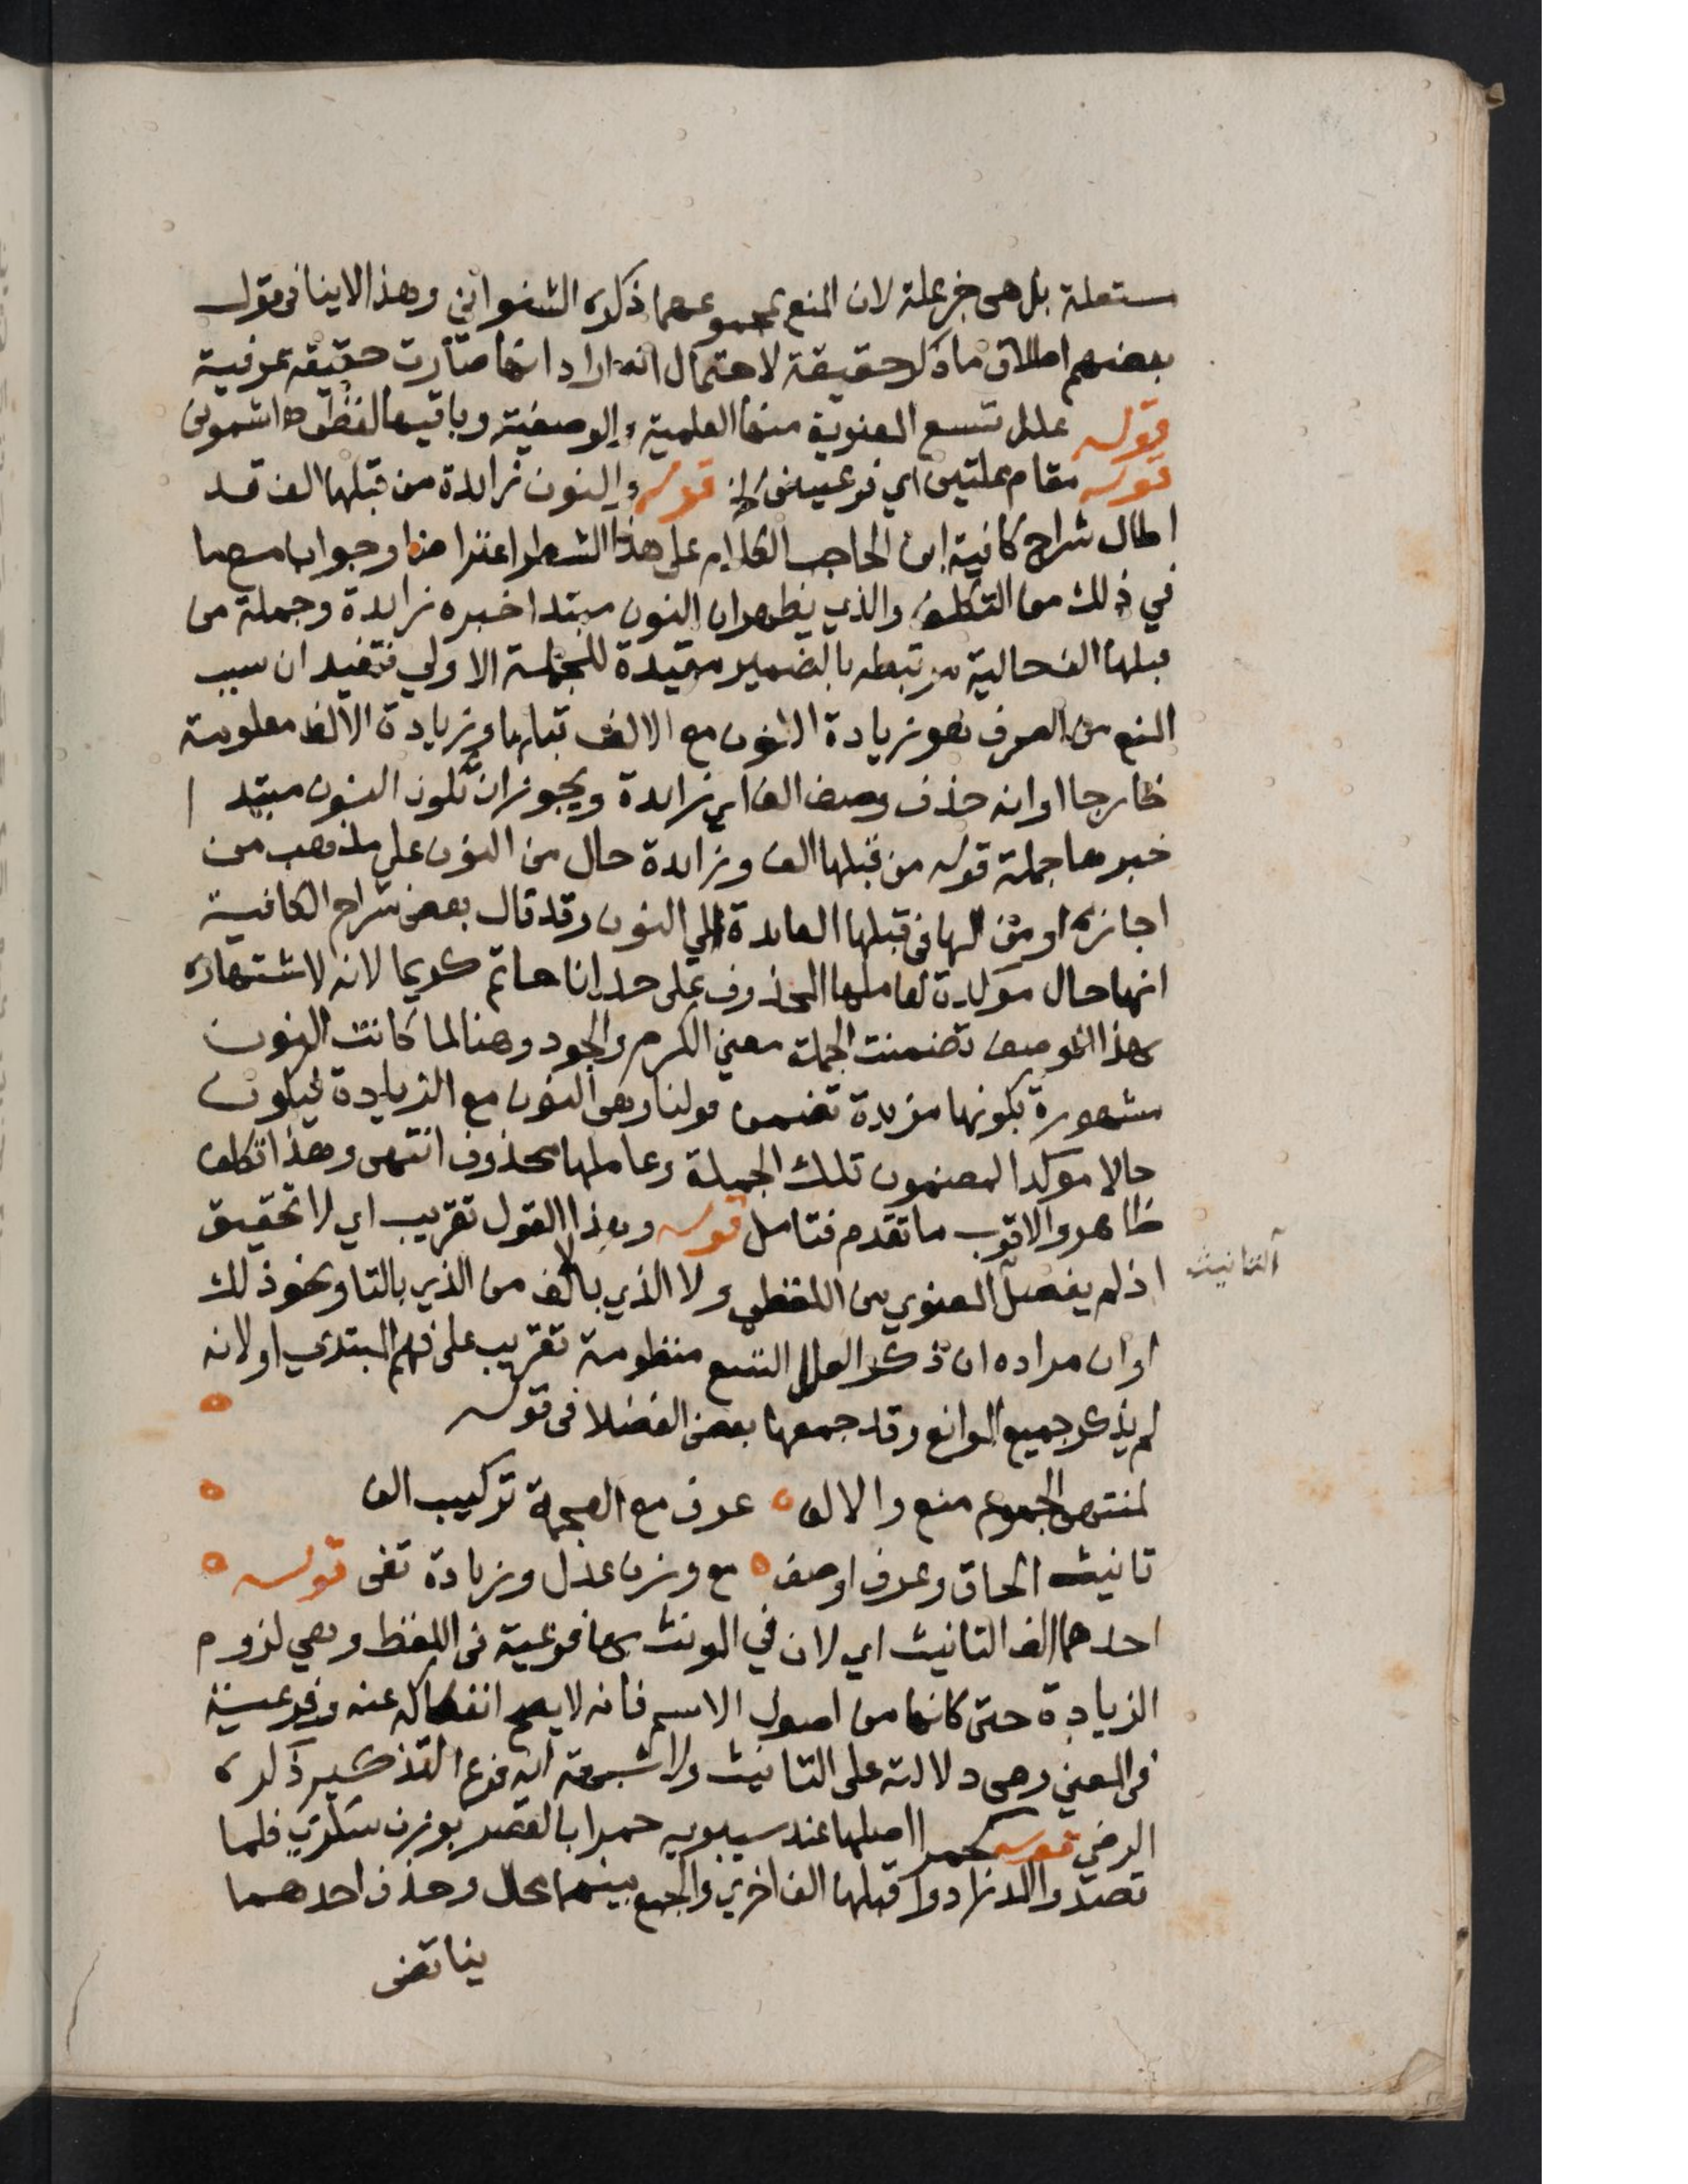 مستقلة بل هي جزء علة لان المنع بمجموعهما ذكره الشنواني وهذا لا ينافي قول
بعضهم اطلاق ما ذكر حقيقة لاحتمال انه اراد انها صارت حقيقة عرفية
قوله علل تسع المعنوية منها العلمية والوصفية وباقيها لفظي اه اشموني
قوله مقام علتين اي فرعيتين الخ قوله والنون زائدة من قبلها الف قد
اطال شراح كافية ابن الحاجب الكلام على هذا الشطر اعتراضا وجوابا مع ما
في ذلك من التكلف والذي يظهر ان النون مبتدا خبره زايدة وجملة من
قبلها الف حالية مرتبطه بالضمير مقيدة للجملة الاولي فتفيد ان سبب
المنع من الصرف هو زيادة النون مع الالف قبلها وزيادة الالف معلومة
خارجا او انه حذف وصف الف اي زايدة ويجوز ان تكون النون مبتد ا
خبرها جملة قوله من قبلها الف وزايدة حال من النون على مذهب من
اجازه او من الها في قبلها العايدة الي النون وقد قال بعض شراح الكافية
انها حال موكدة لعاملها المحذوف على حد انا حاتم كريما لانه لاشتهاره
بهذا الوصف تضمنت الجملة معني الكرم والجود وهنا لما كانت النون
مشهورة بكونها مزيدة تضمن قولنا وهي النون مع الزيادة فيكون
حالا موكدا لمضمون تلك الجملة وعاملها محذوف انتهى وهذا تكلف
ظاهر والاقرب ما تقدم فتامل قوله وهذا القول تقريب اي لا تحقيق
اذ لم يفصل المعنوي من اللفظي ولا الذي بالالف من الذي بالتا ونحو ذلك
التانيث
او ان مراده ان ذكر العلل التسع منظومة تقريب على فهم المبتدي او لانه
لم يذكر جميع الموانع وقد جمعها بعض الفضلا في قوله
لمنتهى الجموع منع والالف عرف مع العجمة تركيب الف
تانيث الحاق وعرف اوصف مع وزن عدل وزيادة تفى قوله
احدهما الف التانيث اي لان في المونث بها فرعية في اللفظ وهي لزوم
الزيادة حتى كانها من اصول الاسم فانه لا يصح انفكاكه عنه وفرعية
في المعني وهي دلالته على التانيث ولا شبهة انه فرع التذكير ذكره
الرضي قوله كحمرا اصلها عند سيبويه حمرا بالقصر بوزن سكري فلما
قصدوا المد زادوا قبلها الف اخري والجمع بينهما محال وحذف احدهما
يناقض